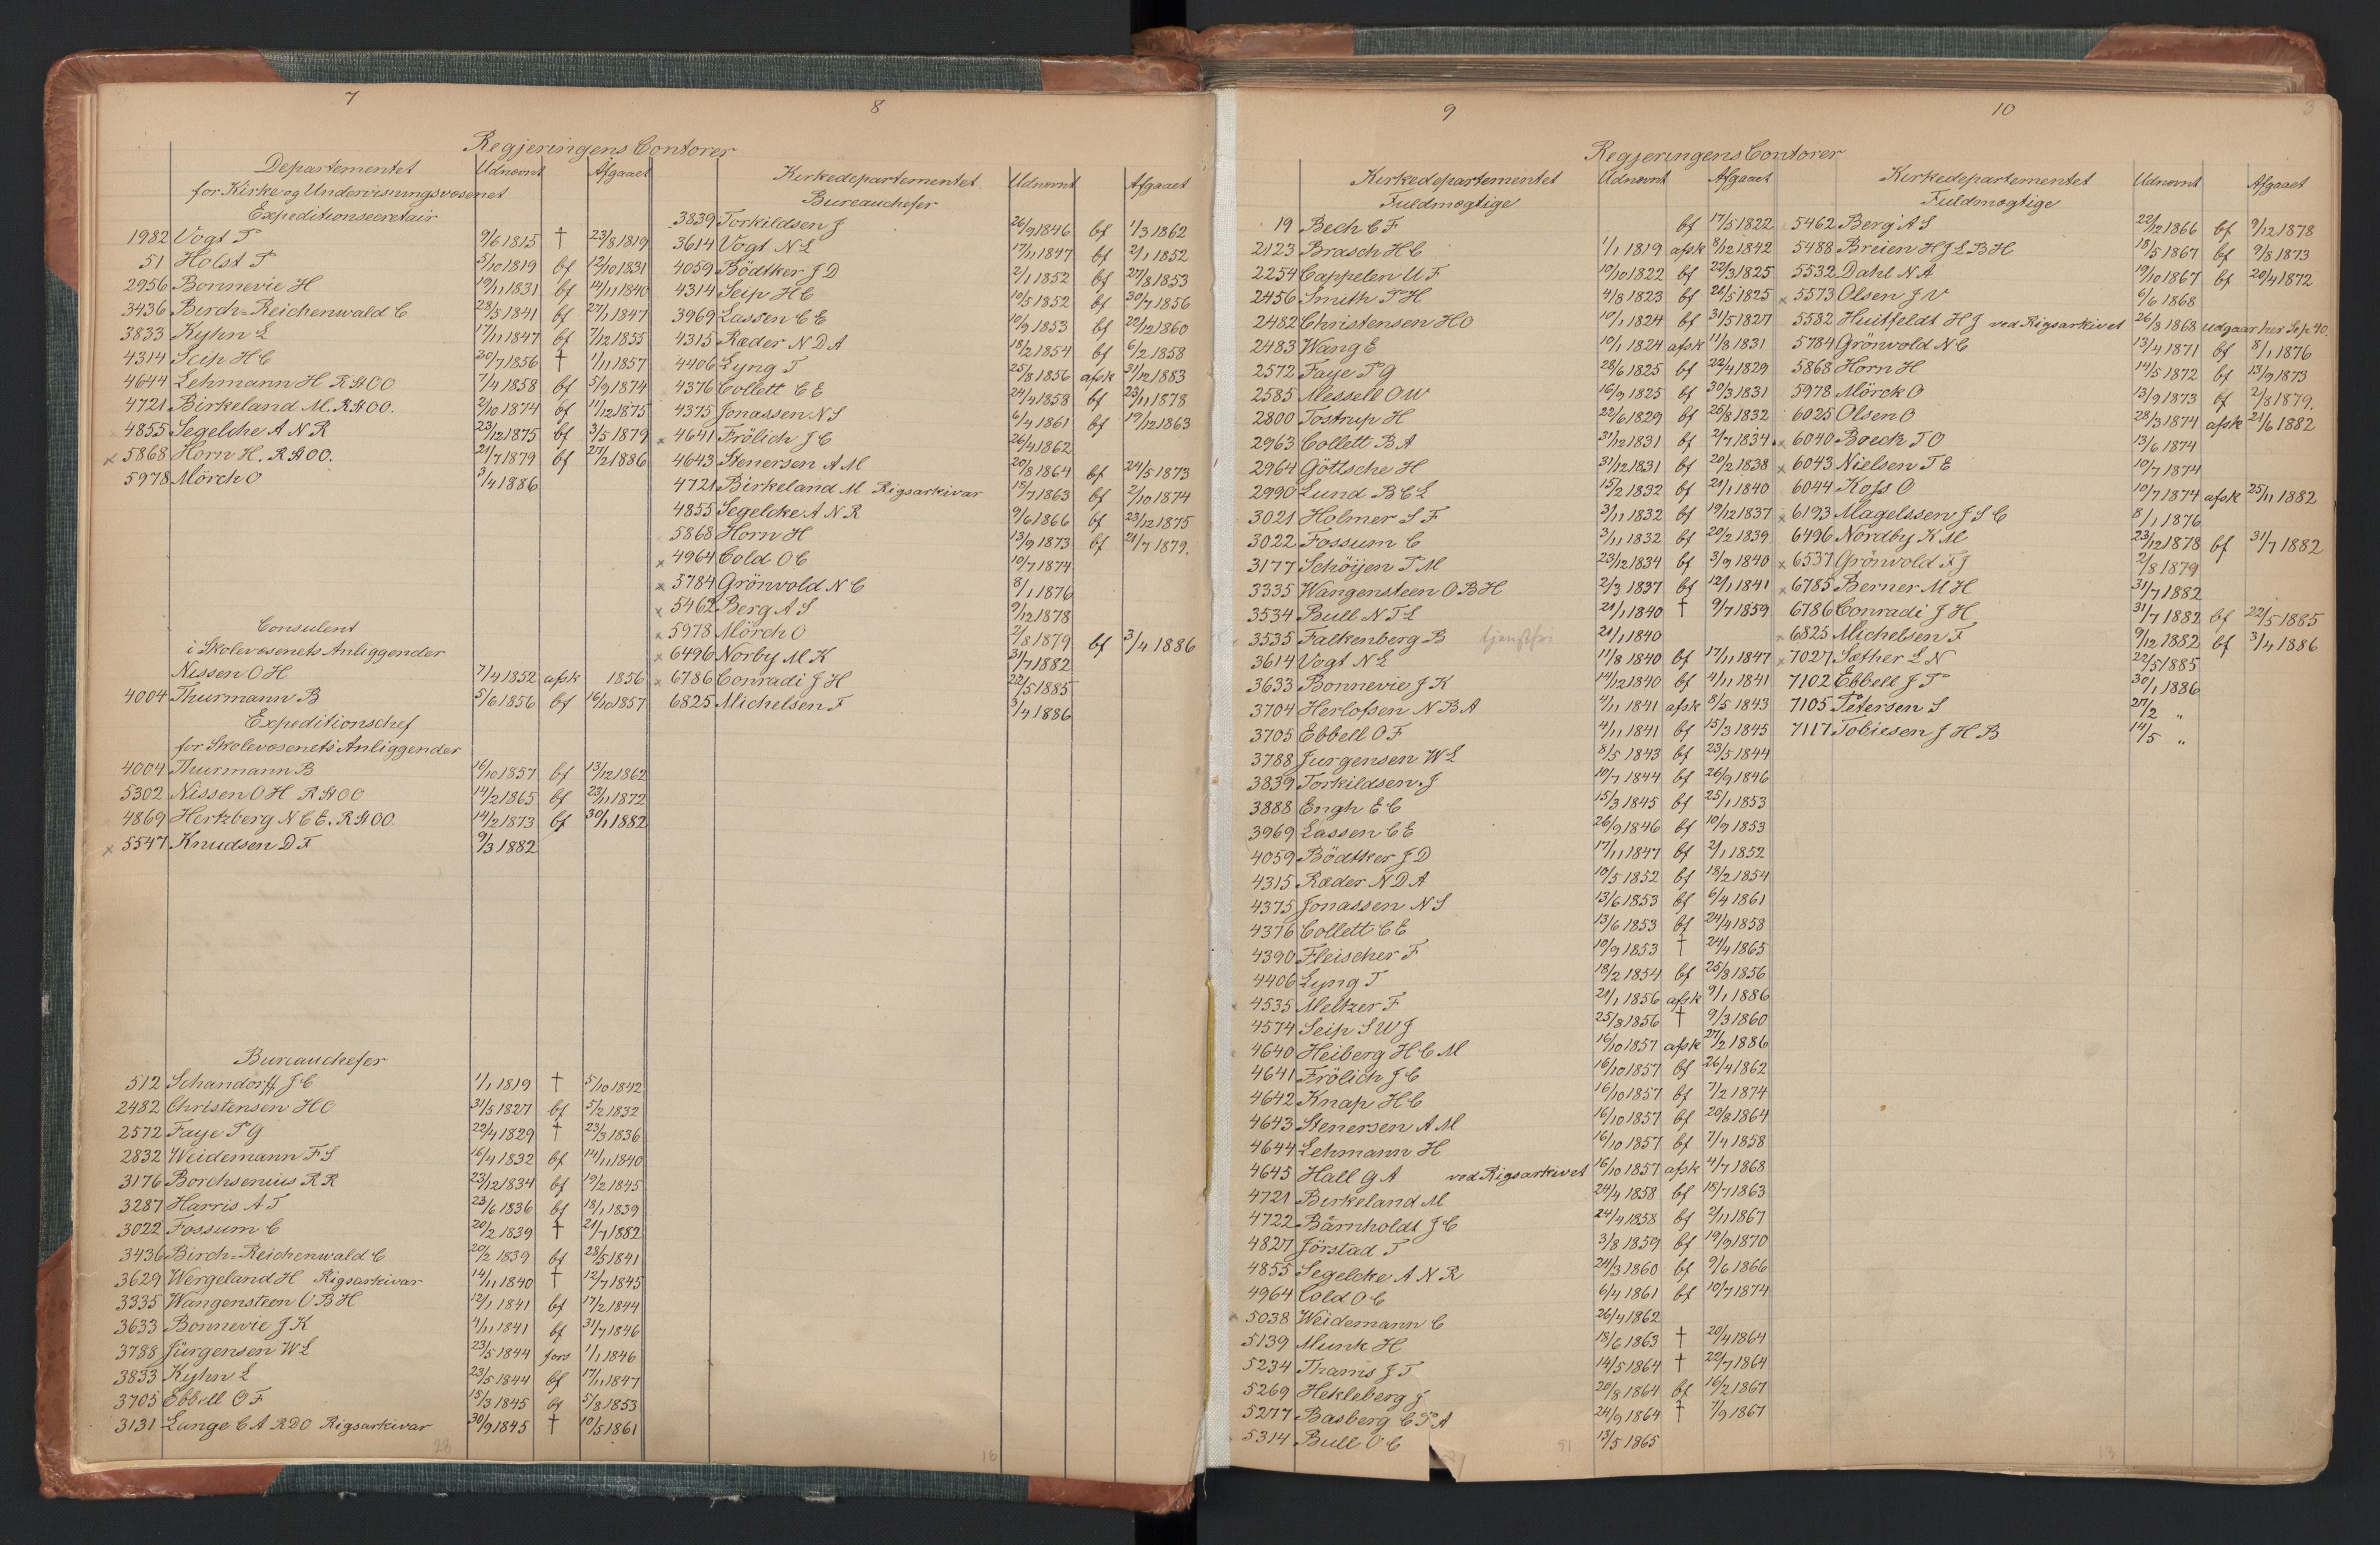 7
Regjeringens Contorer
Departementet Udnævnt Afgaaet
for Kirke og Undervisningsvæsenet
Expeditionssecretair
1982 Vogt P 9/6 1815 † 23/8 1819
51 Holst P 5/10 1819 bf 12/10 1831
2956 Bonnevie H 19/11 1831 bf 14/11 1840
3436 Birch-Reichenwald C 28/5 1841 bf 27/1 1847
3833 Kyhn L 17/11 1847 bf 7/12 1855
4314 Seip H C 30/7 1856 † 1/11 1857
4644 Lehmann H R St OO 7/4 1858 bf 5/9 1874
4721 Birkeland M. R St OO. 2/10 1874 bf 11/12 1875
4855 Segelcke A N R 23/12 1875 bf 3/5 1879
x 5868 Horn H. R St OO. 21/7 1879 bf 27/2 1886
5978 Mörch O 3/4 1886
Consulent
i Skolevæsenets Anliggender
Nissen O H 7/4 1852 afsk 1856
4004 Thurmann B 5/6 1856 bf 16/10 1857
Expeditionschef
for Skolevæsenets Anliggender
4004 Thurmann B 16/10 1857 bf 13/12 1862
5302 Nissen O H R St OO 14/2 1865 bf 23/11 1872
4869 Hertzberg N C E. R St OO. 14/2 1873 bf 30/1 1882
x 5547 Knudsen D F 9/3 1882
Bureauchefer
512 Schandorff J C 1/1 1819 † 5/10 1842
2482 Christensen H O 31/5 1827 bf 5/2 1832
2572 Faye P G 22/4 1829 † 23/3 1836
2832 Weidemann F S 16/4 1832 bf 14/11 1840
3176 Borchsenius R R 23/12 1834 bf 19/2 1845
3287 Harris A T 23/6 1836 bf 18/1 1839
3022 Fossum C 20/2 1839 † 21/7 1882
3436 Birch-Reichenwald C 20/2 1839 bf 28/5 1841
3629 Wergeland H Rigsarkivar 14/11 1840 † 12/7 1845
3335 Wangensteen O B H 12/1 1841 bf 17/2 1844
3633 Bonnevie J K 4/11 1841 bf 31/7 1846
3788 Jürgensen W L 23/5 1844 fors 1/1 1846
3833 Kyhn L 23/5 1844 bf 17/11 1847
3705 Ebbell O F 15/3 1845 bf 5/8 1853
3131 Lange C A RDO Rigsarkivar 30/9 1845 † 10/5 1861
8
Kirkedepartementet Udnævnt Afgaaet
Bureauchefer
3839 Torkildsen J 26/9 1846 bf 1/3 1862
3614 Vogt N L 17/11 1847 bf 2/1 1852
4059 Bödtker J D 2/1 1852 bf 27/8 1853
4314 Seip H C 10/5 1852 bf 30/7 1856
3969 Lassen C E 10/9 1853 bf 22/12 1860
4315 Ræder N D A 18/2 1854 bf 6/2 1858
4406 Lyng T 25/8 1856 afsk 31/12 1883
4376 Collett C E 24/4 1858 bf 23/11 1878
4375 Jonassen N S 6/4 1861 bf 19/12 1863
x 4641 Frölich J C 26/4 1862
4643 Stenersen A M 20/8 1864 bf 24/5 1873
4721 Birkeland M Rigsarkivar 15/7 1863 bf 2/10 1874
4855 Segelcke A N R 9/6 1866 bf 23/12 1875
5868 Horn H 13/9 1873 bf 21/7 1879.
x 4964 Cold O C 10/7 1874
x 5784 Grönvold N C 8/1 1876
x 5462 Berg A S 9/12 1878
x 5978 Mörch O 2/8 1879 bf 3/4 1886
x 6496 Norby M K 31/7 1882
x 6786 Conradi J H 22/5 1885
6825 Michelsen F 3/4 1886
9
Regjeringens Contorer
Kirkedepartementet Udnævnt Afgaaet
Fuldmægtige
19 Bech C F bf 17/5 1822
2123 Brasch H C 1/1 1819 afsk 8/12 1842
2254 Cappelen U F 10/10 1822 bf 22/3 1825
2456 Smith P H 4/8 1823 bf 26/5 1825
2482 Christensen H O 10/1 1824 bf 31/5 1827
2483 Wang E 10/1 1824 afsk 11/8 1831
2572 Faye P G 28/6 1825 bf 22/4 1829
2585 Messell O W 16/9 1825 bf 30/3 1831
2800 Tostrup H 22/6 1829 bf 25/8 1832
2963 Collett B A 31/12 1831 bf 2/7 1834
2964 Göttsche H 31/12 1831 bf 20/2 1838
2990 Lund B C L 15/2 1832 bf 21/1 1840
3021 Holmer S F 3/11 1832 bf 19/12 1837
3022 Fossum C 3/11 1832 bf 20/2 1839
3177 Schöijen P M 23/12 1834 bf 3/9 1840
3335 Wangensteen O B H 2/3 1837 bf 12/1 1841
3534 Bull N T L 21/1 1840 † 9/7 1859
3535 Falkenberg B 21/1 1840
3614 Vogt N L 11/8 1840 bf 17/11 1847
3633 Bonnevie J K 14/12 1840 bf 4/11 1841
3704 Herlofsen N B A 4/11 1841 afsk 8/5 1843
3705 Ebbell O F 4/11 1841 bf 15/3 1845
3788 Jurgensen W L 8/5 1843 bf 23/5 1844
3839 Torkildsen J 10/7 1844 bf 26/9 1846
3888 Engh E C 15/3 1845 bf 25/1 1853
3969 Lassen C E 26/9 1846 bf 10/9 1853
4059 Bödtker J D 17/11 1847 bf 2/1 1852
4315 Ræder N D A 10/5 1852 bf 18/2 1854
4375 Jonassen N S 13/6 1853 bf 6/4 1861
4376 Collett C E 13/6 1853 bf 24/4 1858
4390 Fleischer F 10/9 1853 † 24/4 1865
4406 Lyng T 18/2 1854 bf 25/8 1856
4535 Meltzer F 21/1 1856 afsk 9/1 1886
4574 Seip S W J 25/8 1856 † 9/3 1860
4640 Heiberg H C M 16/10 1857 afsk 27/2 1886
4641 Frölich J C 16/10 1857 bf 26/4 1862
4642 Knap H C 16/10 1857 bf 7/2 1874
4643 Stenersen A M 16/10 1857 bf 20/8 1864
4644 Lehmann H 16/10 1857 bf 7/4 1858
4645 Hall G A ved Rigsarkivet 16/10 1857 afsk 4/7 1868
4721 Birkeland M 24/4 1858 bf 18/7 1863
4722 Bärnholdt J C 24/4 1858 bf 2/11 1867
4827 Jörstad T 3/8 1859 bf 19/9 1870
4855 Segelcke A N R 24/3 1860 bf 9/6 1866
4964 Cold O C 6/4 1861 bf 10/7 1874
x 5038 Weidemann C 26/4 1862
5139 Munk H 18/6 1863 † 20/4 1864
5234 Thams J T 14/5 1864 † 22/7 1864
5269 Hekleberg J 20/8 1864 bf 16/2 1867
5277 Basberg C P A 24/9 1864 † 7/9 1867
5314 Bull O C 13/5 1865
10
3
Kirkedepartementet Udnævnt Afgaaet
Fuldmægtige
5462 Berg A S 22/12 1866 bf 9/12 1878
5488 Breien H J L B H 18/5 1867 bf 9/8 1873
5532 Dahl N A 19/10 1867 bf 20/4 1872
x 5573 Olsen J V 6/6 1868
5582 Huitfeldt H J ved Rigsarkivet 26/8 1868 udgaar her Se p. 40.
5784 Grönvold N C 13/4 1871 bf 8/1 1876
5868 Horn H 14/5 1872 bf 13/9 1873
5978 Mörck O 13/9 1873 bf 2/8 1879.
6025 Olsen O 28/3 1874 afsk 21/6 1882
x 6040 Boeck T O 13/6 1874
x 6043 Nielsen T E 10/7 1874
6044 Koss O 10/7 1874 afsk 25/11 1882
x 6193 Magelssen J S C 8/1 1876
6496 Nordby K M 23/12 1878 bf 31/7 1882
x 6537 Grönvold F J 2/8 1879
x 6785 Berner M H 31/7 1882
6786 Conradi J H 31/7 1882 bf 22/5 1885
x 6825 Michelsen F 9/12 1882 bf 3/4 1886
x 7027 Sæther L N 22/5 1885
7102 Ebbell J P 30/1 1886
7105 Petersen S 27/2 "
7117 Tobiesen J H B 14/5 "